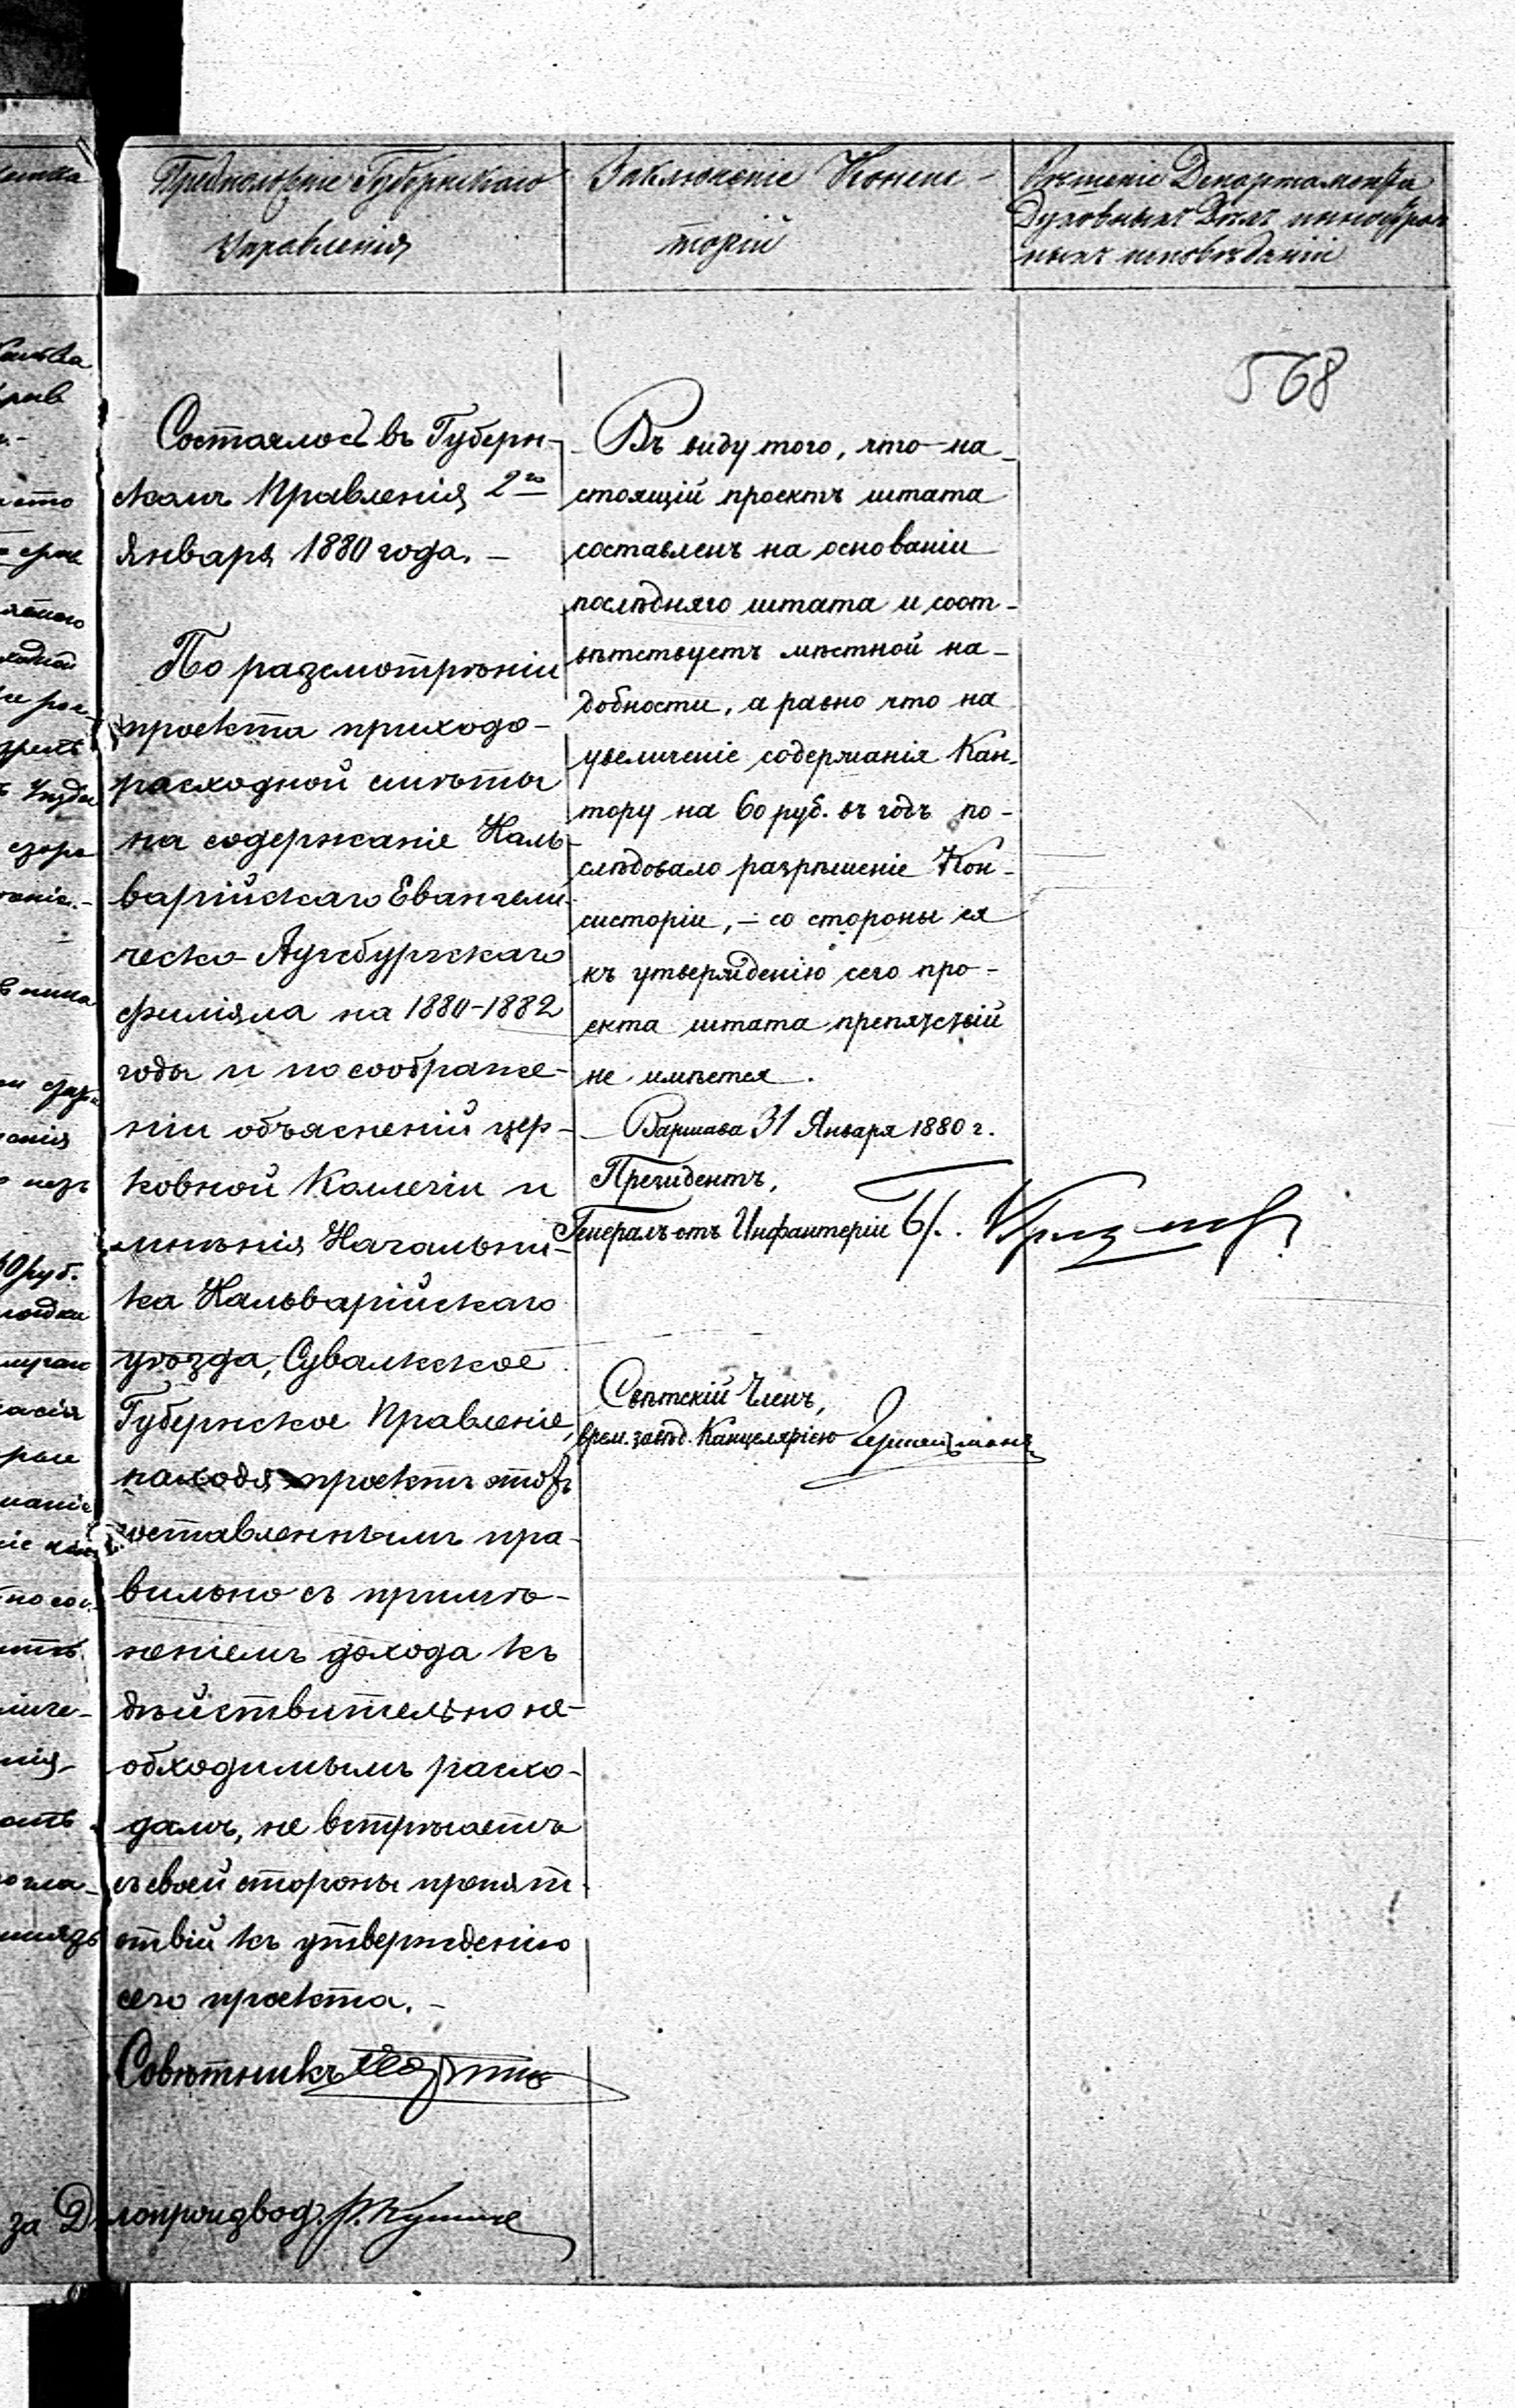 Предположеніе Губернскаго
Управленія
Заключеніе Консис-
торіи
Рѣшеніе Департамента
Духовныхъ Дѣлъ иностран
ныхъ исповѣданій
568
Состоялось въ Губерн-
скомъ Правленія 2го
Января 1880 года. –
По разсмотрѣніи
проекта приходо-
расходной смѣты
на содержаніе Каль-
варійскаго Евангели-
ческо-Аугсбургскаго
филіяла на 1880-1882
годы и по соображе-
ніи объясненій цер-
ковной Коллегіи и
мнѣнія Начальни-
ка Кальварійскаго
уѣзда, Сувалкское
Губернское Правленіе,
находя проектъ этотъ
составленнымъ пра-
вильно съ примѣ-
неніемъ дохода къ
дѣйствительно не-
обходимымъ расхо-
дамъ, не встрѣчаетъ
съ своей стороны препят-
ствій къ утвержденію
сего проекта. –
Совѣтникъ
за Дѣлопроизвод.
Въ виду того, что на-
стоящій проектъ штата
составленъ на основаніи
послѣдняго штата и соот-
вѣтствуетъ мѣстной на-
добности, а равно что на
увеличеніе содержанія Кан-
тору на 60 руб. въ годъ по-
слѣдовало разрѣшеніе Кон-
систоріи, – со стороны ея
къ утвержденію сего про-
екта штата препятствій
не имѣется.
Варшава 31 Января 1880 г.
Президентъ,
Генералъ отъ Инфантеріи
Свѣтскій Членъ,
врем. завѣд. Канцеляріею